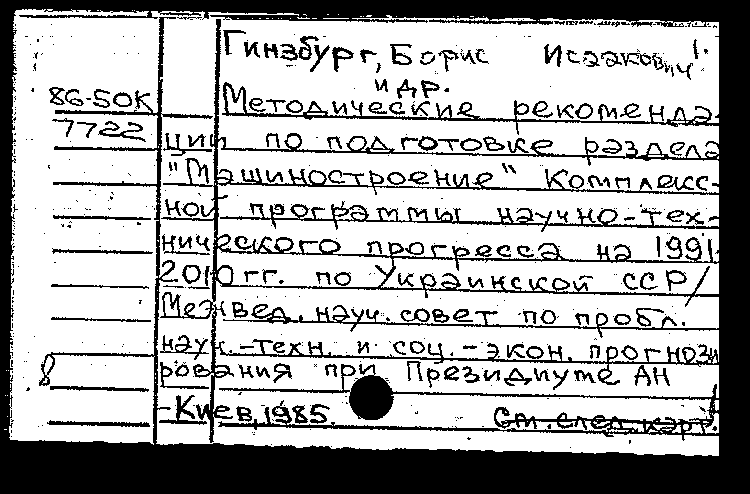 Гинзбург, Борис Исаакович 1.
и др.
86-50К Методические рекоменда-
7722 ции по подготовке раздела
"Машиностроение" Комплекс-
ной программы научно-тех-
нического прогресса на 1991-
2010 гг. по Украинской ССР/
Межвед. науч. совет по пробл.
науч.-техн. и соц.-экон. прогнози
8 рования при Президиуме АН
-Киев, 1985. См. след. карт.